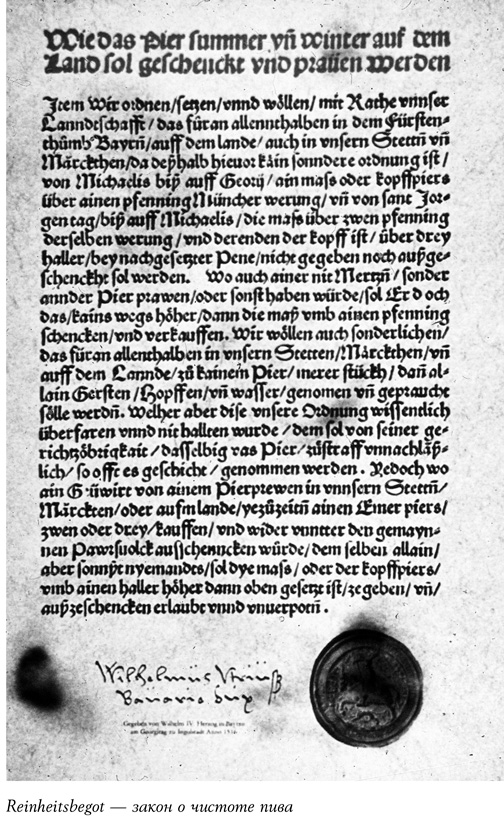 Wie das Pier summer vñ winter auf dem
Land sol geschenckt vnd prauen werden
Item Wir ordnen/setzen/vnnd wöllen/mit Rathe vnnser
Lanndtschafft/das füran allennthalben in dem Fürsten-
thumb Bayrn/auff dem lande/auch in vnsern Stettn vñ
Märckthen/da deßhalb hieuor kain sonndere ordnung ist/
von Michaelis biß auff Georij/ain mass oder kopffpiers
über ainen pfenning Müncher werung/vñ von sant Jor-
gen tag/biß auff Michaelis/die mass über zwen pfenning
derselben werung/vnd derenden der kopff ist/über drey
haller/bey nachgesetzter Pene/nicht gegeben noch außge-
schenckht sol werden. Wo auch ainer nit Mertzñ/sonder
annder Pier prawen/oder sonst haben würde/sol Er doch
das/kains wegs höher/dann die maß vmb ainen pfenning
schencken/vnd verkauffen. Wir wöllen auch sonderlichen/
das füran allenthalben in vnsern Stetten/Märckthen/vñ
auff dem Lannde/zů kainem Pier/merer stückh/dañ al-
lain Gersten/Hopffen/vñ wasser/genomen vñ geprauche
sölle werdñ. Welher aber dise vnsere Ordnung wissentlich
überfaren vnnd nit hallten wurde/dem sol von seiner ge-
richtzöbrigkait/dasselbig vas Pier/zůstraff vnnachläß-
lich/so offt es geschicht/genommen werden. Yedoch wo
ain Güwirt von ainem Pierprewen in vnnsern Stettñ/
Märckten/oder aufm lande/yezůzeitñ ainen Emer piers/
zwen oder drey/kauffen/vnd wider vnnter den gemayn-
nen Pawrsuolck ausschenncken würde/dem selben allain/
aber sonnßt nyemandes/sol dye mass/oder der kopffpiers/
vmb ainen haller höher dann oben gesetzt ist/zegeben/vñ/
außzeschencken erlaubt vnnd vnuerpotñ.
Wilhelmus
Bavarie dux
Gegeben von Wilhelm IV. Herzog in Bayern
am Georgitag zu Ingolstadt Anno 1516
Reinheitsbegot — закон о чистоте пива